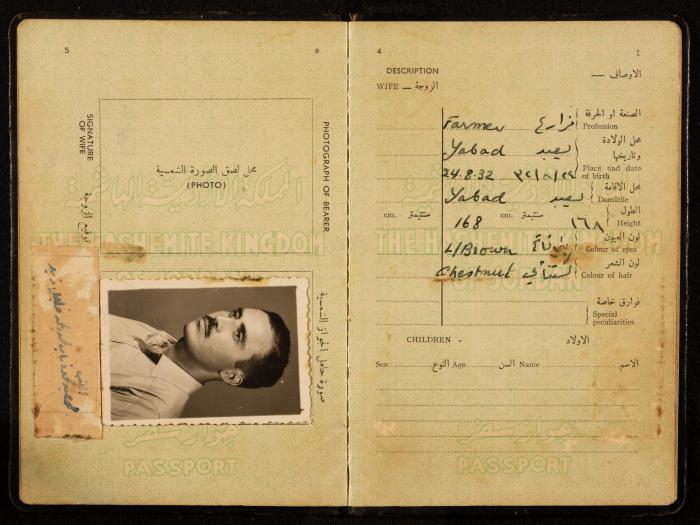 5 ٥
SIGNATURE
OF WIFE
توقيع الزوجة
PHOTOGRAPH OF BEARER
محل لصق الصورة الشمسية
(PHOTO)
THE HASHEMITE KINGDOM
OF JORDAN
صورة حامل الجواز الشمسية
جواز سفر
PASSPORT
4 ٤
DESCRIPTION الاوصاف —
WIFE — الزوجة
Farmer مزارع الصنعة او الحرفة
Profession
Yabad يعبد محل الولادة
وتاريخها
24.8.32 Place and date
of birth
Yabad يعبد محل الاقامة
Domicile
cm. سنتيمتر cm. سنتيمتر الطول
168 ١٦٨ Height
لون العيون
L/Brown Colour of eyes
لون الشعر
Chestnut الكستنائي Colour of hair
THE HASHEMITE KINGDOM
OF JORDAN
فوارق خاصة
Special
peculiarities
CHILDREN . الاولاد
Sex النوع Age السن Name الاسم
جواز سفر
PASSPORT